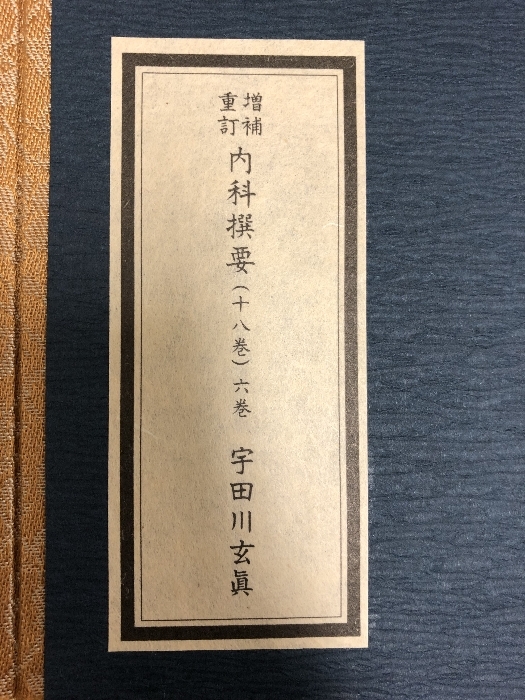 増補重訂内科撰要(十八巻)六巻 宇田川玄眞